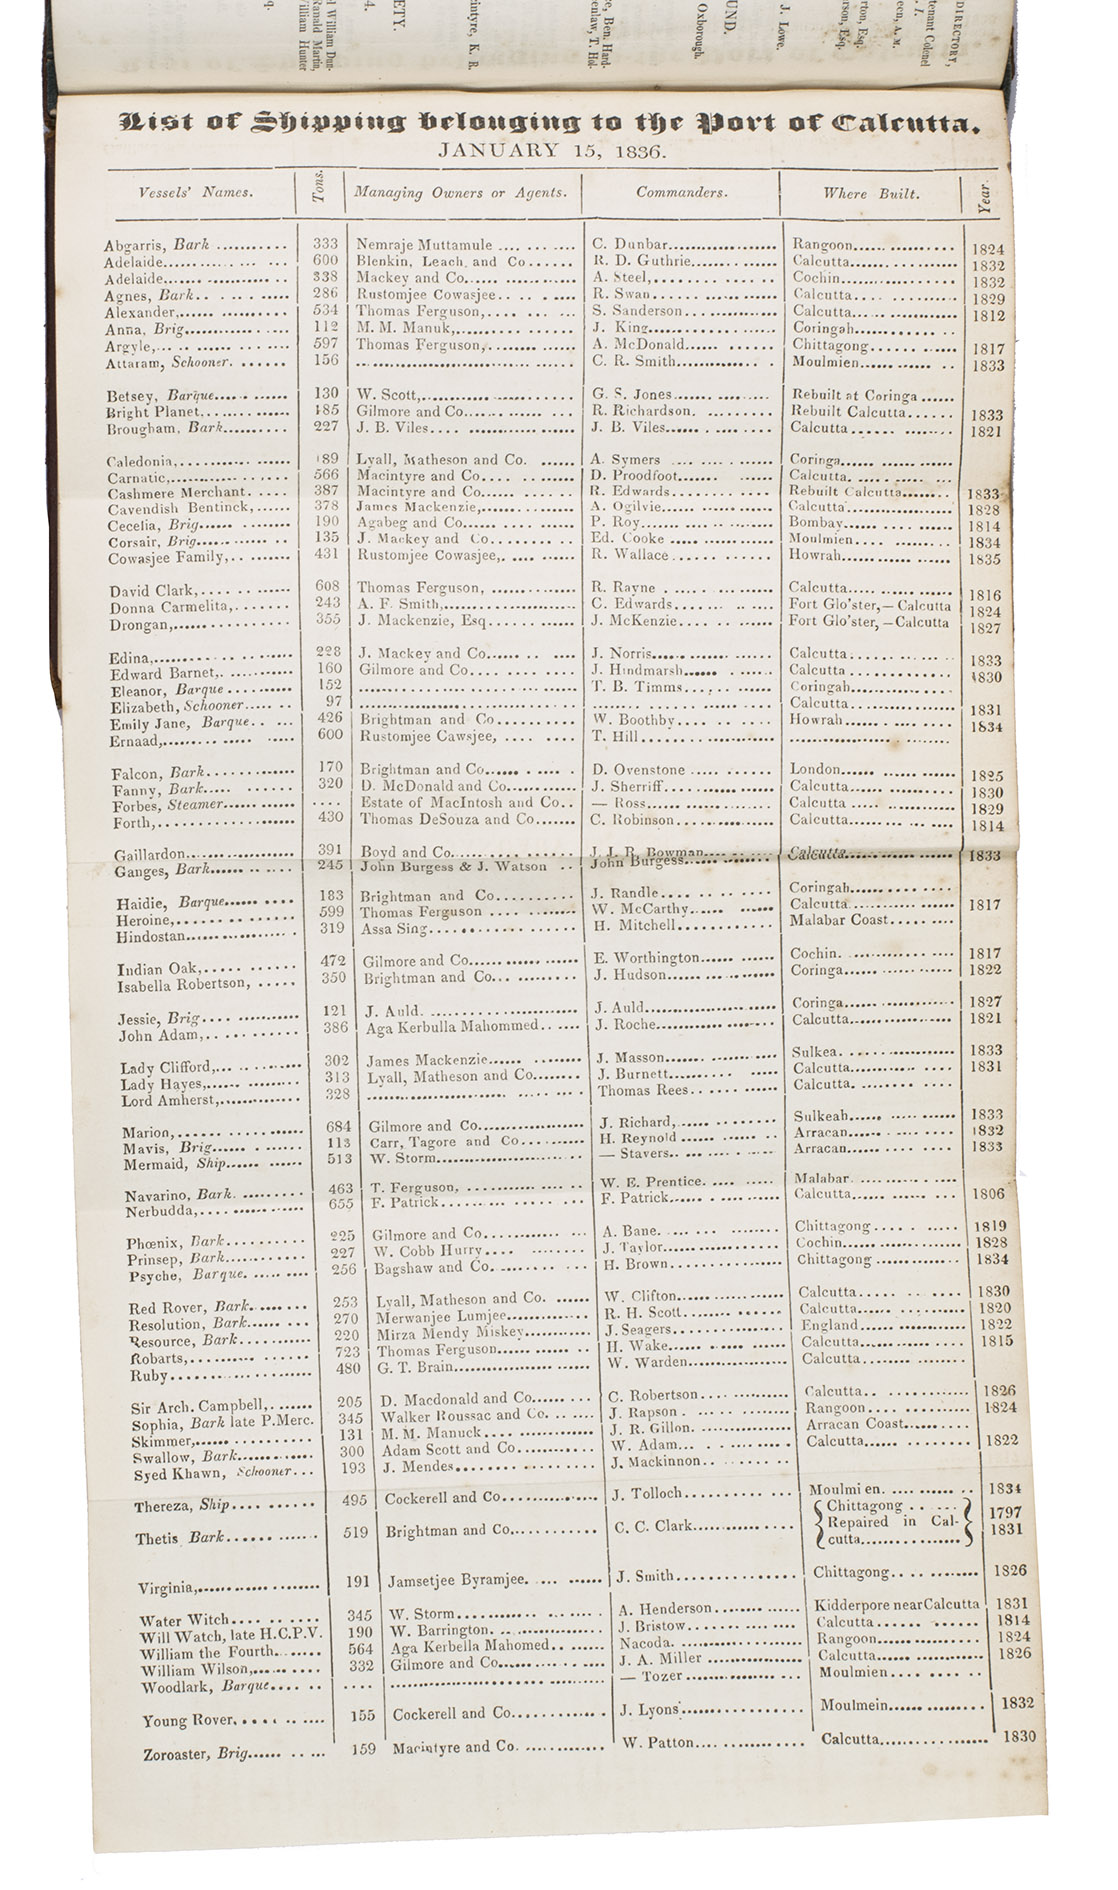 DIRECTORY,
tenant Colonel
een, A. M.
rton, Esq.
rson, Esq.
J. Lowe.
UND.
Oxborough.
ce, Ben. Hard-
enlaw, T. Hol-
intyre, K. R.
ETY.
4.
l William Dun-
Ranald Martin,
William Hunter
q.
List of Shipping belonging to the Port of Calcutta.
JANUARY 15, 1836.
Vessels' Names. Tons. Managing Owners or Agents. Commanders. Where Built. Year.
Abgarris, Bark 333 Nemraje Muttamule C. Dunbar Rangoon 1824
Adelaide 600 Blenkin, Leach, and Co R. D. Guthrie Calcutta 1832
Adelaide 338 Mackey and Co. A. Steel, Cochin 1832
Agnes, Bark 286 Rustomjee Cowasjee R. Swan Calcutta 1829
Alexander, 534 Thomas Ferguson, S. Sanderson Calcutta 1812
Anna, Brig 112 M. M. Manuk, J. King Coringah
Argyle, 597 Thomas Ferguson, A. McDonald Chittagong 1817
Attaram, Schooner 156 C. R. Smith Moulmien 1833
Betsey, Barque 130 W. Scott, G. S. Jones Rebuilt at Coringa
Bright Planet, 185 Gilmore and Co. R. Richardson. Rebuilt Calcutta 1833
Brougham, Bark 227 J. B. Viles J. B. Viles Calcutta 1821
Caledonia, 189 Lyall, Matheson and Co. A. Symers Coringa
Carnatic, 566 Macintyre and Co D. Proodfoot Calcutta
Cashmere Merchant 387 Macintyre and Co R. Edwards Rebuilt Calcutta 1833
Cavendish Bentinck, 378 James Mackenzie, A. Ogilvie Calcutta 1828
Cecelia, Brig 190 Agabeg and Co P. Roy Bombay 1814
Corsair, Brig 135 J. Mackey and Co Ed. Cooke Moulmien 1834
Cowasjee Family, 431 Rustomjee Cowasjee, R. Wallace Howrah 1835
David Clark, 608 Thomas Ferguson, R. Rayne Calcutta 1816
Donna Carmelita, 243 A. F. Smith, C. Edwards Fort Glo'ster,—Calcutta 1824
Drongan, 355 J. Mackenzie, Esq J. McKenzie Fort Glo'ster,—Calcutta 1827
Edina, 228 J. Mackey and Co J. Norris Calcutta 1833
Edward Barnet, 160 Gilmore and Co J. Hindmarsh Calcutta 1830
Eleanor, Barque 152 T. B. Timms Coringah
Elizabeth, Schooner 97 Calcutta 1831
Emily Jane, Barque 426 Brightman and Co W. Boothby Howrah 1834
Ernaad, 600 Rustomjee Cawsjee, T. Hill
Falcon, Bark 170 Brightman and Co D. Ovenstone London 1825
Fanny, Bark 320 D. McDonald and Co J. Sherriff Calcutta 1830
Forbes, Steamer Estate of MacIntosh and Co — Ross Calcutta 1829
Forth, 430 Thomas DeSouza and Co C. Robinson Calcutta 1814
Gaillardon 391 Boyd and Co J. J. R. Bowman Calcutta 1833
Ganges, Bark 245 John Burgess & J. Watson John Burgess
Haidie, Barque 183 Brightman and Co J. Randle Coringah
Heroine, 599 Thomas Ferguson W. McCarthy Calcutta 1817
Hindostan 319 Assa Sing H. Mitchell Malabar Coast
Indian Oak, 472 Gilmore and Co E. Worthington Cochin. 1817
Isabella Robertson, 350 Brightman and Co J. Hudson Coringa 1822
Jessie, Brig 121 J. Auld. J. Auld Coringa 1827
John Adam, 386 Aga Kerbulla Mahommed J. Roche Calcutta 1821
Lady Clifford, 302 James Mackenzie J. Masson Sulkea. 1833
Lady Hayes, 313 Lyall, Matheson and Co J. Burnett Calcutta 1831
Lord Amherst, 328 Thomas Rees Calcutta.
Marion, 684 Gilmore and Co J. Richard, Sulkeah 1833
Mavis, Brig 113 Carr, Tagore and Co H. Reynold Arracan 1832
Mermaid, Ship 513 W. Storm — Stavers Arracan 1833
Navarino, Bark. 463 T. Ferguson, W. E. Prentice. Malabar
Nerbudda, 655 F. Patrick F. Patrick Calcutta 1806
Phœnix, Bark 225 Gilmore and Co A. Bane. Chittagong 1819
Prinsep, Bark 227 W. Cobb Hurry J. Taylor Cochin 1828
Psyche, Barque. 256 Bagshaw and Co. H. Brown Chittagong 1834
Red Rover, Bark 253 Lyall, Matheson and Co. W. Clifton Calcutta 1830
Resolution, Bark 270 Merwanjee Lumjee R. H. Scott Calcutta 1820
Resource, Bark 220 Mirza Mendy Miskey J. Seagers England 1822
Robarts, 723 Thomas Ferguson H. Wake Calcutta 1815
Ruby 480 G. T. Brain W. Warden Calcutta
Sir Arch. Campbell, 205 D. Macdonald and Co C. Robertson Calcutta 1826
Sophia, Bark late P.Merc. 345 Walker Roussac and Co. J. Rapson Rangoon 1824
Skimmer, 131 M. M. Manuck J. R. Gillon. Arracan Coast
Swallow, Bark 300 Adam Scott and Co W. Adam Calcutta 1822
Syed Khawn, Schooner 193 J. Mendes J. Mackinnon
Thereza, Ship 495 Cockerell and Co J. Tolloch Moulmien. 1834
Thetis Bark 519 Brightman and Co C. C. Clark {Chittagong Repaired in Calcutta} 1797 1831
Virginia, 191 Jamsetjee Byramjee. J. Smith Chittagong 1826
Water Witch 345 W. Storm A. Henderson Kidderpore near Calcutta 1831
Will Watch, late H.C.P.V. 190 W. Barrington. J. Bristow Calcutta 1814
William the Fourth 564 Aga Kerbella Mahomed Nacoda. Rangoon 1824
William Wilson, 332 Gilmore and Co J. A. Miller Calcutta 1826
Woodlark, Barque — Tozer Moulmien
Young Rover, 155 Cockerell and Co J. Lyons Moulmein 1832
Zoroaster, Brig 159 Macintyre and Co. W. Patton Calcutta 1830